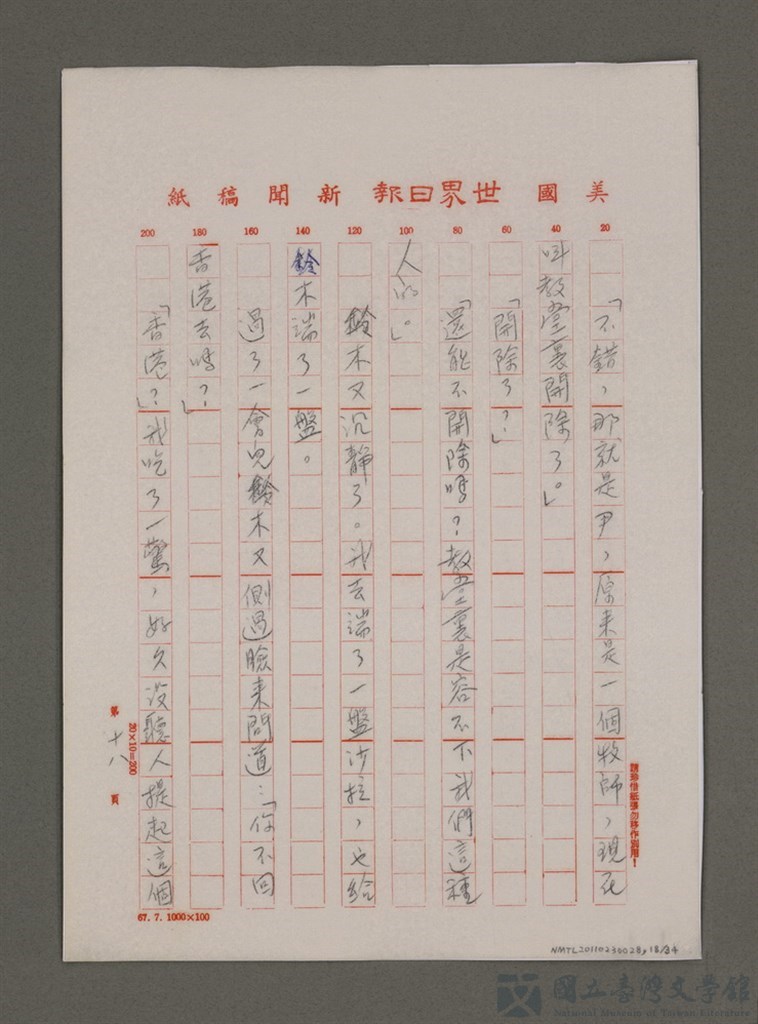 美國世界日報新聞稿紙
20
40
60
80
100
120
140
160
180
200
「不錯，那就是尹，原来是一個牧師，現在
叫教堂裏開除了。」
「開除了？」
「還能不開除嗎？教堂裏是容不下我們這種
人的。」
鈴木又沉靜了。我去端了一盤沙拉，也給
鈴木端了一盤。
過了一會兒鈴木又側過臉来問道：「你不回
香港去嗎？」
「香港？」我吃了一驚，好久沒聽人提起這個
請珍惜紙張勿移作別用！
20×10=200
第十八頁
67. 7. 1000×100
NMTL20110230028, 18/34
國立臺灣文學館
National Museum of Taiwan Literature